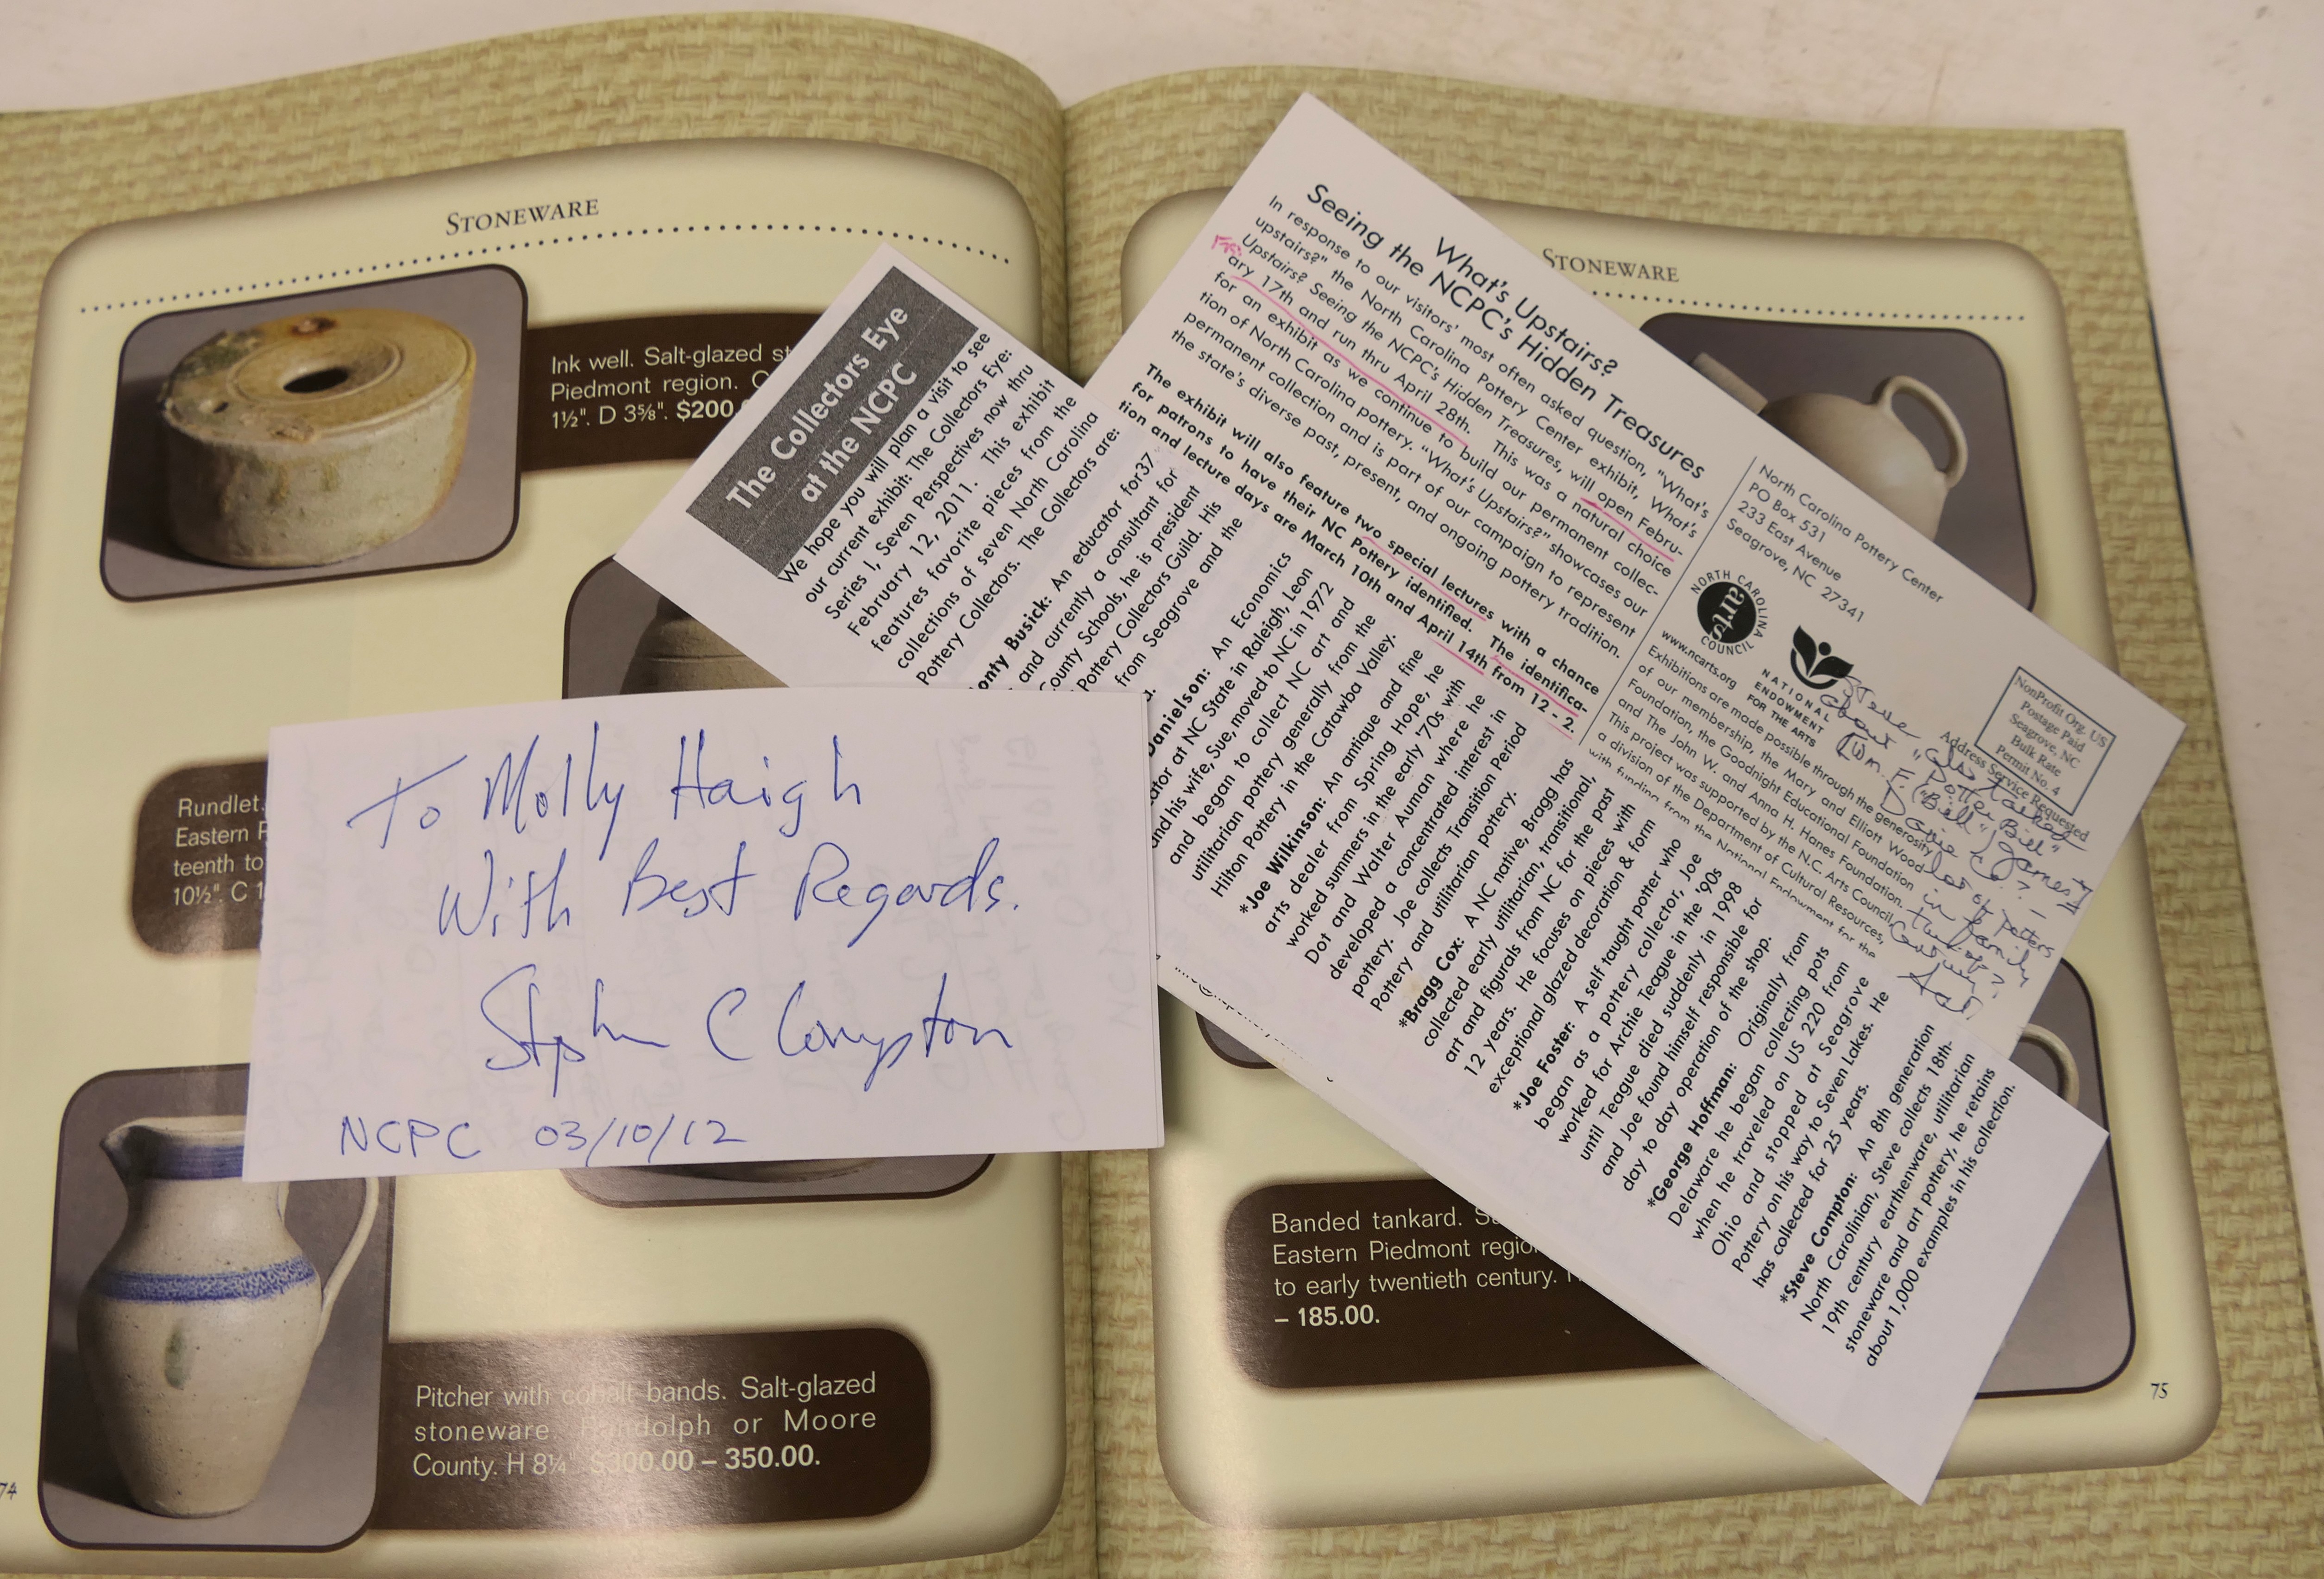 STONEWARE
Ink well. Salt-glazed
Piedmont region.
1½". D 3⅝". $200.
Rundlet.
Eastern
teenth to
10½". C 1
Pitcher with cobalt bands. Salt-glazed
stoneware. Randolph or Moore
County. H 8¼". $300.00 – 350.00.
74
To Molly Haigh
With Best Regards.
Stephen C Compton
NCPC 03/10/12
The Collectors Eye
at the NCPC
We hope you will plan a visit to see
our current exhibit: The Collectors Eye:
Series I, Seven Perspectives now thru
February 12, 2011. This exhibit
features favorite pieces from the
collections of seven North Carolina
Pottery Collectors. The Collectors are:
onty Busick: An educator for37
and currently a consultant for
County Schools, he is president
Pottery Collectors Guild. His
from Seagrove and the
Danielson: An Economics
ator at NC State in Raleigh, Leon
and his wife, Sue, moved to NC in 1972
and began to collect NC art and
utilitarian pottery generally from the
Hilton Pottery in the Catawba Valley.
*Joe Wilkinson: An antique and fine
arts dealer from Spring Hope, he
worked summers in the early '70s with
Dot and Walter Auman where he
developed a concentrated interest in
pottery. Joe collects Transition Period
Pottery and utilitarian pottery.
*Bragg Cox: A NC native, Bragg has
collected early utilitarian, transitional,
art and figurals from NC for the past
12 years. He focuses on pieces with
exceptional glazed decoration & form
*Joe Foster: A self taught potter who
began as a pottery collector, Joe
worked for Archie Teague in the '90s
until Teague died suddenly in 1998
and Joe found himself responsible for
day to day operation of the shop.
*George Hoffman: Originally from
Delaware he began collecting pots
when he traveled on US 220 from
Ohio and stopped at Seagrove
Pottery on his way to Seven Lakes. He
has collected for 25 years.
*Steve Compton: An 8th generation
North Carolinian, Steve collects 18th-
19th century earthenware, utilitarian
stoneware and art pottery, he retains
about 1,000 examples in his collection.
What's Upstairs?
Seeing the NCPC's Hidden Treasures
In response to our visitors' most often asked question, "What's
upstairs?" the North Carolina Pottery Center exhibit, What's
Upstairs? Seeing the NCPC's Hidden Treasures, will open Febru-
ary 17th and run thru April 28th. This was a natural choice
for an exhibit as we continue to build our permanent collec-
tion of North Carolina pottery. "What's Upstairs?" showcases our
permanent collection and is part of our campaign to represent
the state's diverse past, present, and ongoing pottery tradition.
The exhibit will also feature two special lectures with a chance
for patrons to have their NC Pottery identified. The identifica-
tion and lecture days are March 10th and April 14th from 12 - 2.
North Carolina Pottery Center
PO Box 531
233 East Avenue
Seagrove, NC 27341
NORTH CAROLINA
arts
COUNCIL
www.ncarts.org
NATIONAL
ENDOWMENT
FOR THE ARTS
Exhibitions are made possible through the generosity
of our membership, the Mary and Elliott Wood
Foundation, the Goodnight Educational Foundation
and The John W. and Anna H. Hanes Foundation.
This project was supported by the N.C. Arts Council,
a division of the Department of Cultural Resources,
with funding from the National Endowment for the
NonProfit Org. US
Postage Paid
Seagrove, NC
Bulk Rate
Permit No. 4
Address Service Requested
Steve also talked
about "Potter Bill"
(Wm. F. ("Bill")
lot of Potters
in family
STONEWARE
Banded tankard.
Eastern Piedmont
to early twentieth century.
– 185.00.
75